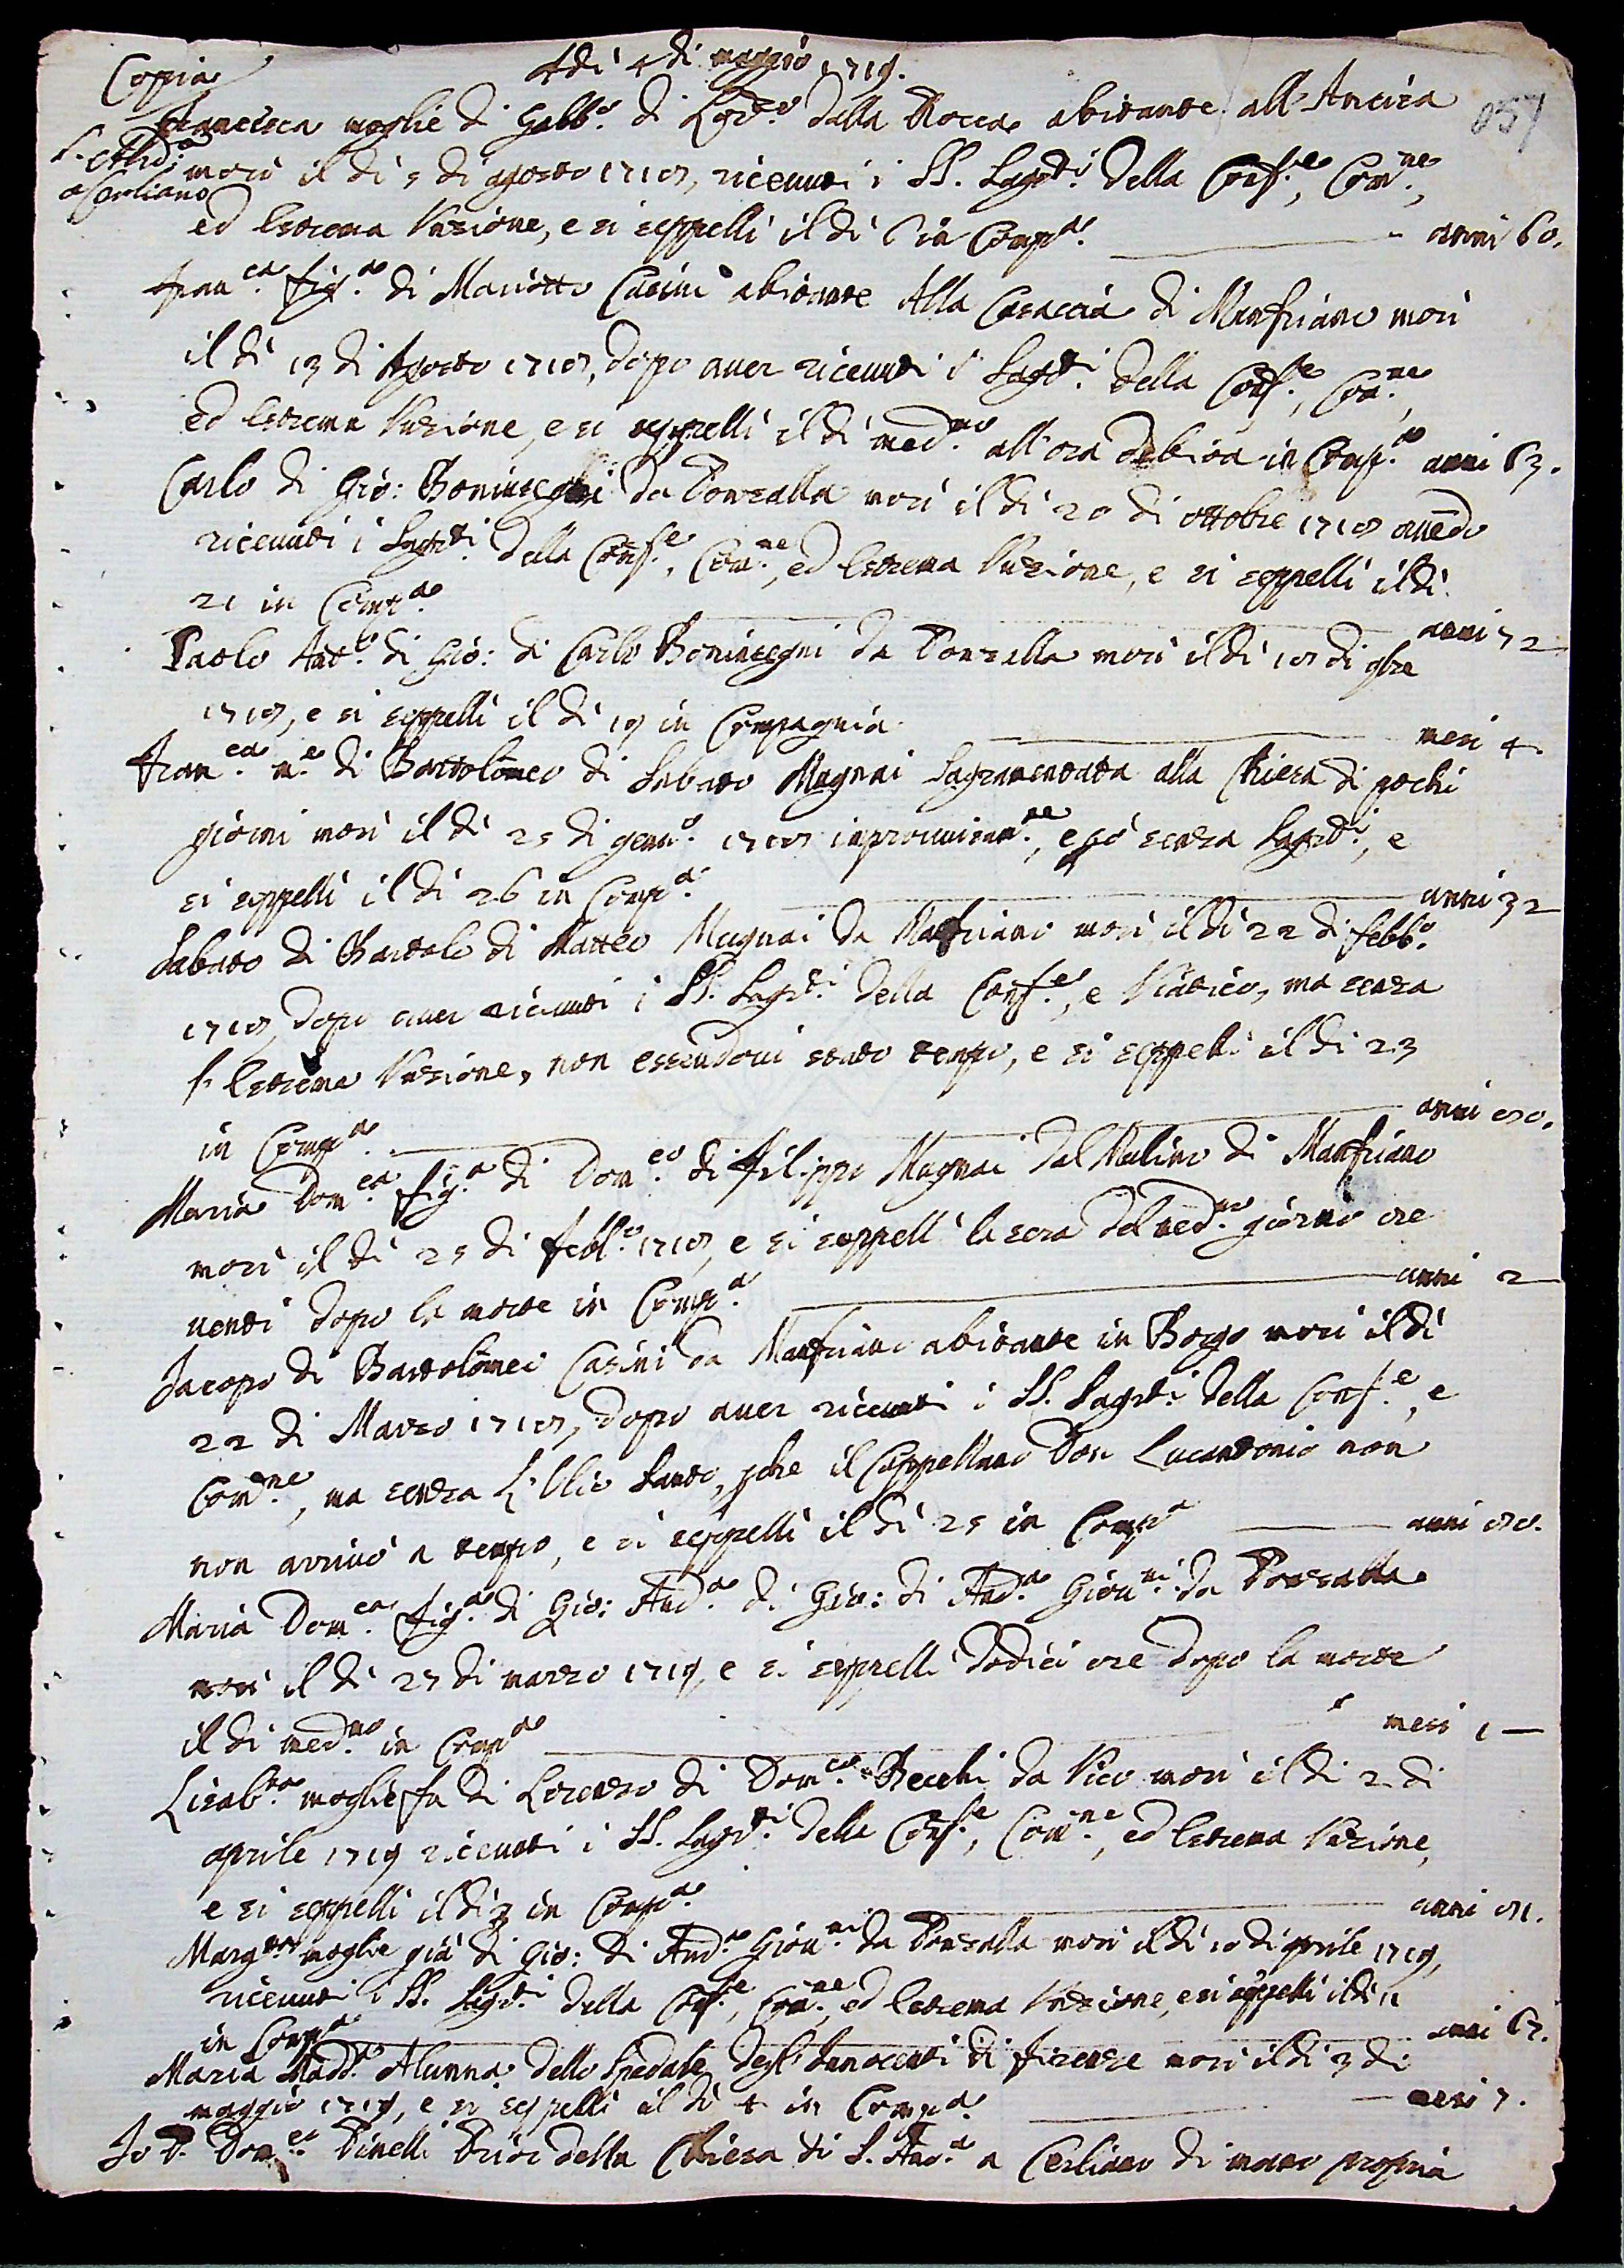 Coppia
Adì 4 di maggio 1719.
057
S. And.a a Cerliano
Francesca moglie di Gabb.o di Lor.zo dalla Rocca abitante all'Ancisa
morì il dì 5 di agosto 1718, riceuuti i SS. Sagr.ti della Conf.e, Com.ne,
ed Estrema Vnzione, e si seppellì il dì 6 in Comp.a anni 60.
Fran.ca fig.a di Mariotto Casini abitante Alla Casaccia di Manfriano morì
il dì 13 di Agosto 1718, dopo auer riceuuti i Sagr.ti della Conf.e, Com.ne,
ed Estrema Vnzione, e si seppellì il dì med.mo all'ora debita in Comp.a anni 63.
Carlo di Gio: Boninsegni da Ponzalla morì il dì 20 di ottobre 1718 auēdo
riceuuti i Sagr.ti della Conf.e, Com.ne, ed Estrema Vnzione, e si seppellì il dì
21 in Comp.a anni 72
Paolo Ant.o di Gio: di Carlo Boninsegni da Ponzalla morì il dì 18 di 9bre
1718, e si seppellì il dì 19 in Compagnia mesi 4.
Fran.ca m.e di Bartolomeo di Sabato Magnai Sagramentata alla Chiesa di pochi
giorni morì il dì 25 di genn.o 1718 improuuisam.te, e pò senza Sagr.ti, e
si seppellì il dì 26 in Comp.a anni 32
Sabato di Bartolo di Matteo Magnai da Manfriano morì il dì 22 di febb.o
1718 dopo auer riceuuti i SS. Sagr.ti della Conf.e, e Viatico, ma senza
l'Estrema Vnzione, non essendoui stato tempo, e si seppellì il dì 23
in Comp.a anni 80.
Maria Dom.ca fig.a di Dom.co di Filippo Magnai dal Mulino di Manfriano
morì il dì 25 di febb.o 1718, e si seppellì la sera del med.mo giorno ore
uenti dopo la morte in Comp.a anni 2
Jacopo di Bartolomeo Casini da Manfriano abitante in Borgo morì il dì
22 di Marzo 1718, dopo auer riceuuti i SS. Sagr.ti della Conf.e, e
Com.ne, ma senza l'Olio Santo, pche il Cappellano Don Lucantonio non
non arriuò a tempo, e si seppellì il dì 25 in Comp.a anni 80.
Maria Dom.ca fig.a di Gio: And.a di Gio: di And.a Giou.ni da Ponzalla
morì il dì 27 di marzo 1719, e si seppellì dodici ore dopo la morte
il dì med.mo in Comp.a mesi 1
Lisab.ta moglie fu di Lorenzo di Dom.co Becchi da Vico morì il dì 2 di
aprile 1719 riceuuti i SS. Sagr.ti della Conf.e, Com.ne, ed Estrema Vnzione,
e si seppellì il dì 3 in Comp.a anni 81.
Marg.ta moglie già di Gio: di And.a Giou.ni da Ponzalla morì il dì 10 di aprile 1719,
riceuuti i SS. Sagr.ti della Conf.e, Com.ne, ed Estrema Vnzione, e si seppellì il dì 11
in Comp.a anni 67.
Maria Madd.a Alunna dello Spedale degl'Innocenti di Firenze morì il dì 3 di
maggio 1719, e si seppellì il dì 4 in Comp.a mesi 7.
Io P. Dom.co Pinelli Prior della Chiesa di S. And.a a Cerliano di mano propria